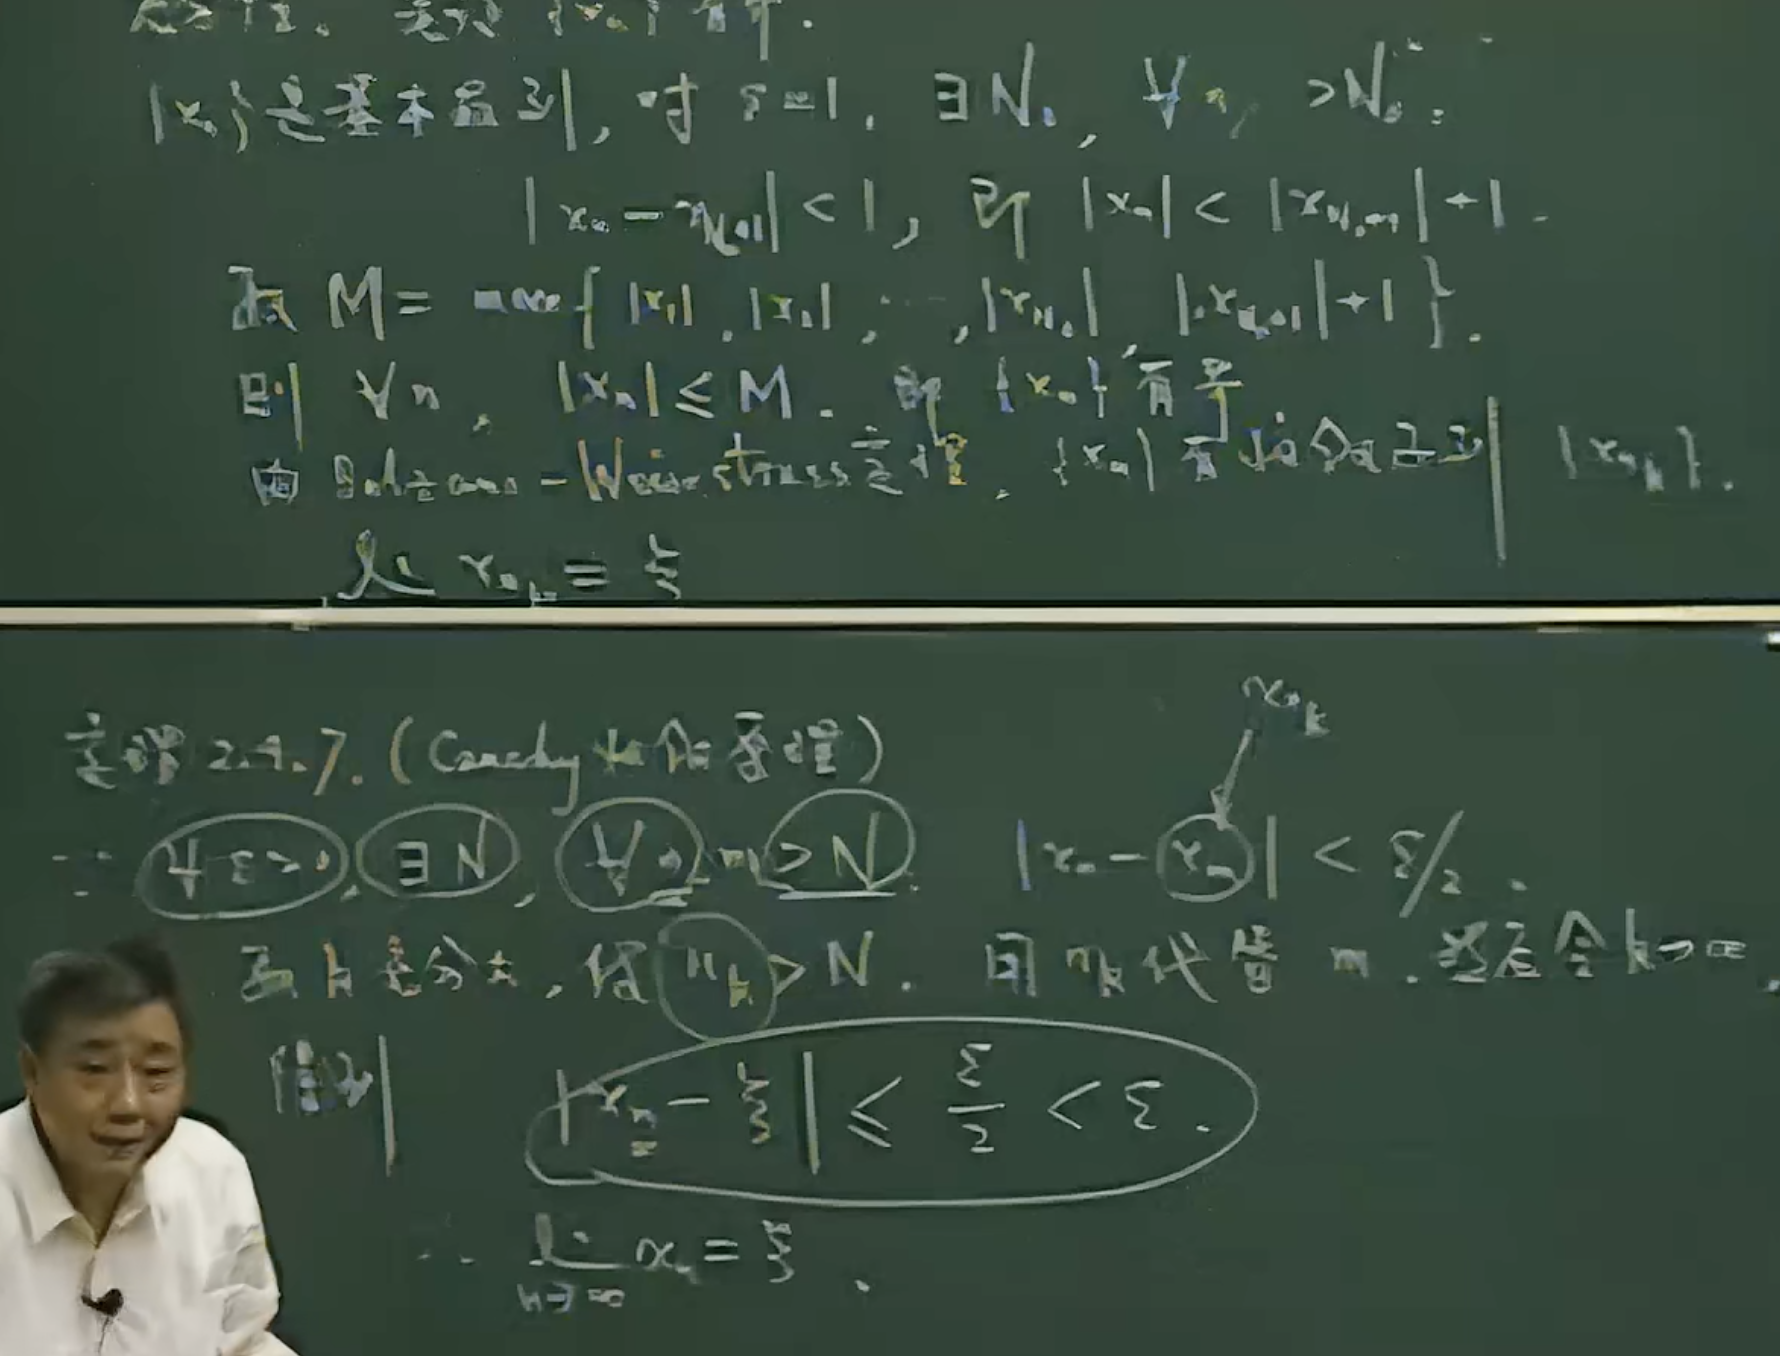 {xₙ}是基本数列, 对 ε=1, ∃N₀, ∀n >N₀:
|xₙ - x_{N₀+1}| < 1, 即 |xₙ| < |x_{N₀+1}| + 1.
取 M = max{ |x₁|, |x₂|, ⋯, |x_{N₀}| |x_{N₀+1}|+1 }.
则 ∀n, |xₙ| ≤ M. 即 {xₙ} 有界
由 Bolzano-Weierstrass 定理, {xₙ} 有收敛子列 {x_{n_k}}.
lim x_{n_k} = ξ
定理 2.4.7. (Cauchy 收敛原理)
x_{n_k}
∵ ∀ε>0, ∃N, ∀n, m>N. |xₙ - xₘ| < ε/2.
取 k 充分大, 使 n_k > N. 用 n_k 代替 m. 然后令 k→∞,
得到 |xₙ - ξ| ≤ ε/2 < ε.
∴ lim_{n→∞} xₙ = ξ.